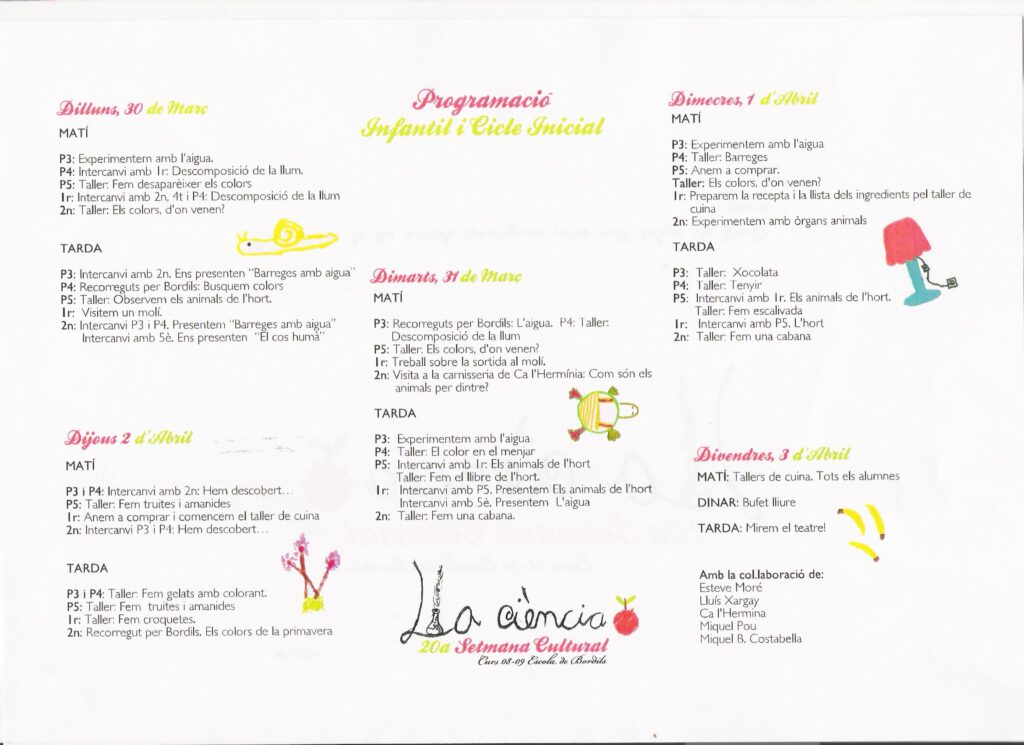 Programació
Infantil i Cicle Inicial
Dilluns, 30 de Març
MATÍ
P3: Experimentem amb l'aigua.
P4: Intercanvi amb 1r: Descomposició de la llum.
P5: Taller: Fem desaparèixer els colors
1r: Intercanvi amb 2n, 4t i P4: Descomposició de la llum
2n: Taller: Els colors, d'on venen?
TARDA
P3: Intercanvi amb 2n. Ens presenten "Barreges amb aigua"
P4: Recorreguts per Bordils: Busquem colors
P5: Taller: Observem els animals de l'hort.
1r: Visitem un molí.
2n: Intercanvi P3 i P4. Presentem "Barreges amb aigua"
Intercanvi amb 5è. Ens presenten "El cos humà"
Dimarts, 31 de Març
MATÍ
P3: Recorreguts per Bordils: L'aigua. P4: Taller:
Descomposició de la llum
P5: Taller: Els colors, d'on venen?
1r: Treball sobre la sortida al molí.
2n: Visita a la carnisseria de Ca l'Hermínia: Com són els
animals per dintre?
TARDA
P3: Experimentem amb l'aigua
P4: Taller: El color en el menjar
P5: Intercanvi amb 1r: Els animals de l'hort
Taller: Fem el llibre de l'hort.
1r: Intercanvi amb P5. Presentem Els animals de l'hort
Intercanvi amb 5è. Presentem L'aigua
2n: Taller: Fem una cabana.
Dimecres, 1 d'Abril
MATÍ
P3: Experimentem amb l'aigua
P4: Taller: Barreges
P5: Anem a comprar.
Taller: Els colors, d'on venen?
1r: Preparem la recepta i la llista dels ingredients pel taller de
cuina
2n: Experimentem amb òrgans animals
TARDA
P3: Taller: Xocolata
P4: Taller: Tenyir
P5: Intercanvi amb 1r. Els animals de l'hort.
Taller: Fem escalivada
1r: Intercanvi amb P5. L'hort
2n: Taller: Fem una cabana
Dijous 2 d'Abril
MATÍ
P3 i P4: Intercanvi amb 2n: Hem descobert…
P5: Taller: Fem truites i amanides
1r: Anem a comprar i comencem el taller de cuina
2n: Intercanvi P3 i P4: Hem descobert…
TARDA
P3 i P4: Taller: Fem gelats amb colorant.
P5: Taller: Fem truites i amanides
1r: Taller: Fem croquetes.
2n: Recorregut per Bordils. Els colors de la primavera
Divendres, 3 d'Abril
MATÍ: Tallers de cuina. Tots els alumnes
DINAR: Bufet lliure
TARDA: Mirem el teatre!
Amb la col.laboració de:
Esteve Moré
Lluís Xargay
Ca l'Hermina
Miquel Pou
Miquel B. Costabella
La ciència
20a Setmana Cultural
Curs 08-09 Escola de Bordils